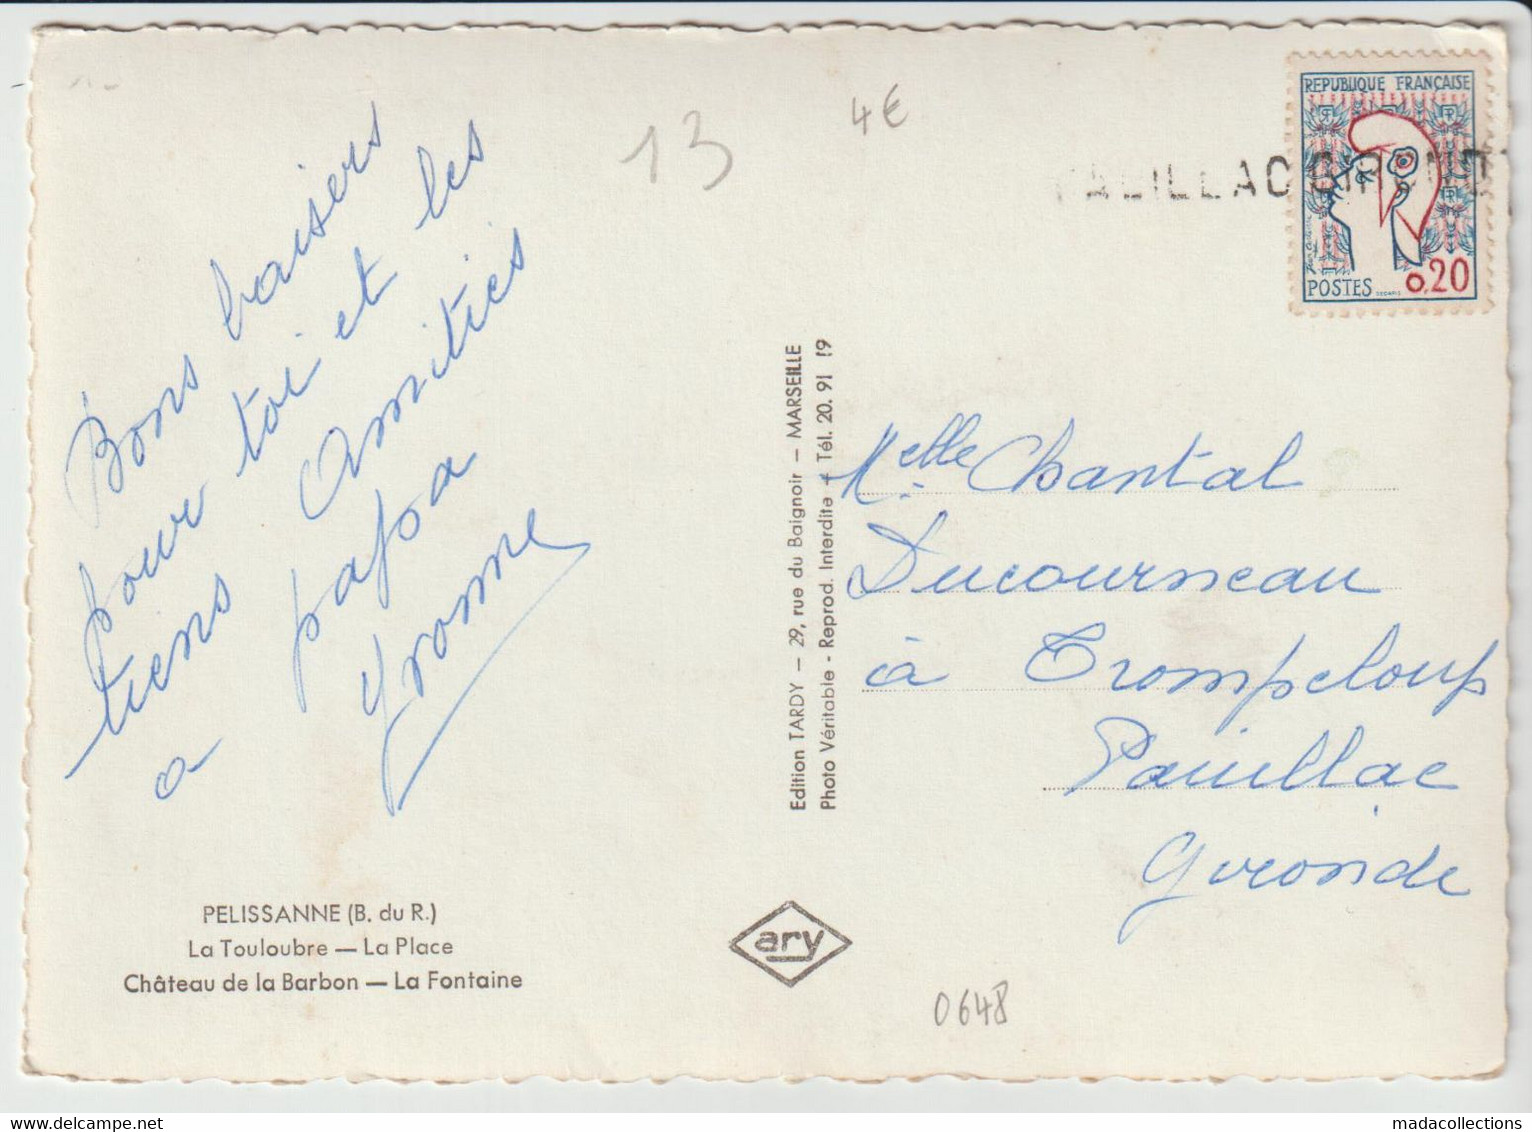 Bons baisers
pour toi et les
tiens Amitiés
a papa
Yvonne
13
4€
REPUBLIQUE FRANÇAISE
POSTES 0,20
Edition TARDY — 29, rue du Baignoir — MARSEILLE
Photo Véritable - Reprod. Interdite - Tél. 20. 91 19
Melle Chantal
Ducourneau
à Trompeloup
Pauillac
Gironde
PELISSANNE (B. du R.)
La Touloubre — La Place
Château de la Barbon — La Fontaine
ary
0648
madacollections